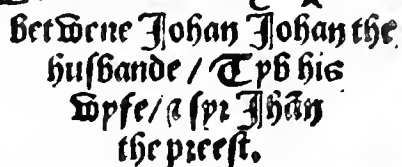 betwene Johan Johan the
husbande / Tyb his
wyfe / & syr Jhān
the preest.